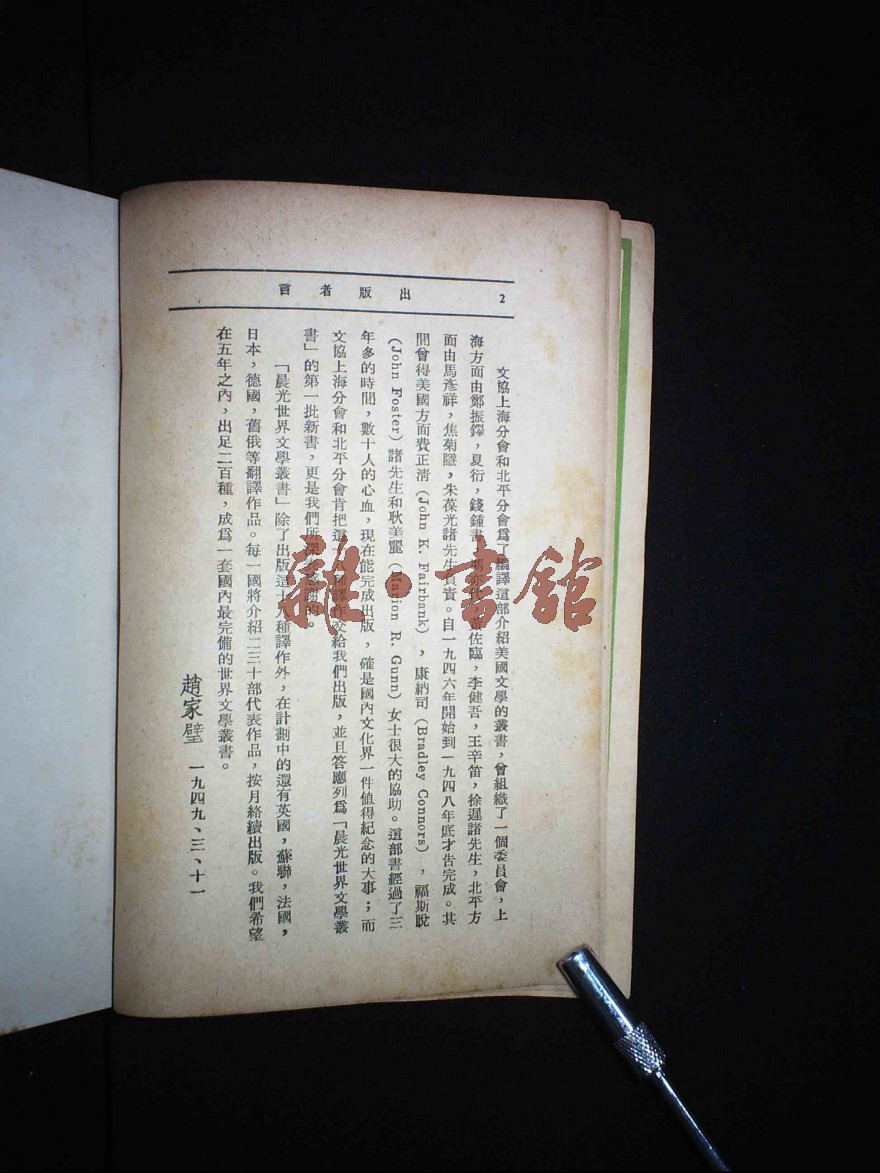 2　出版者言
文協上海分會和北平分會爲了編譯這部介紹美國文學的叢書，曾組織了一個委員會，上
海方面由鄭振鐸，夏衍，錢鍾書，佐臨，李健吾，王辛笛，徐遲諸先生，北平方
面由馬彥祥，焦菊隱，朱葆光諸先生負責。自一九四六年開始到一九四八年底才告完成。其
間曾得美國方面費正清（John K. Fairbank），康納司（Bradley Connors），福斯脫
（John Foster）諸先生和耿美麗（Marion R. Gunn）女士很大的協助。這部書經過了三
年多的時間，數十人的心血，現在能完成出版，確是國內文化界一件值得紀念的大事；而
文協上海分會和北平分會肯把這十八種譯作交給我們出版，並且答應列爲「晨光世界文學叢
書」的第一批新書，更是我們所深感謝的。
「晨光世界文學叢書」除了出版這十八種譯作外，在計劃中的還有英國，蘇聯，法國，
日本，德國，舊俄等翻譯作品。每一國將介紹二三十部代表作品，按月絡續出版。我們希望
在五年之內，出足二百種，成爲一套國內最完備的世界文學叢書。
趙家璧　一九四九、三、十一
雜·書館